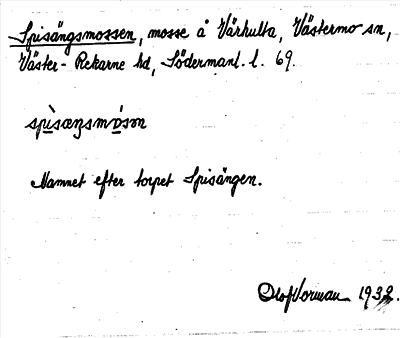 Spisängsmossen, mosse å Värhulta, Västermo sn,
Väster-Rekarne hd, Södermanl. l. 69.
spìsæŋsmòsən
Namnet efter torpet Spisängen.
Olof Norman 1932.